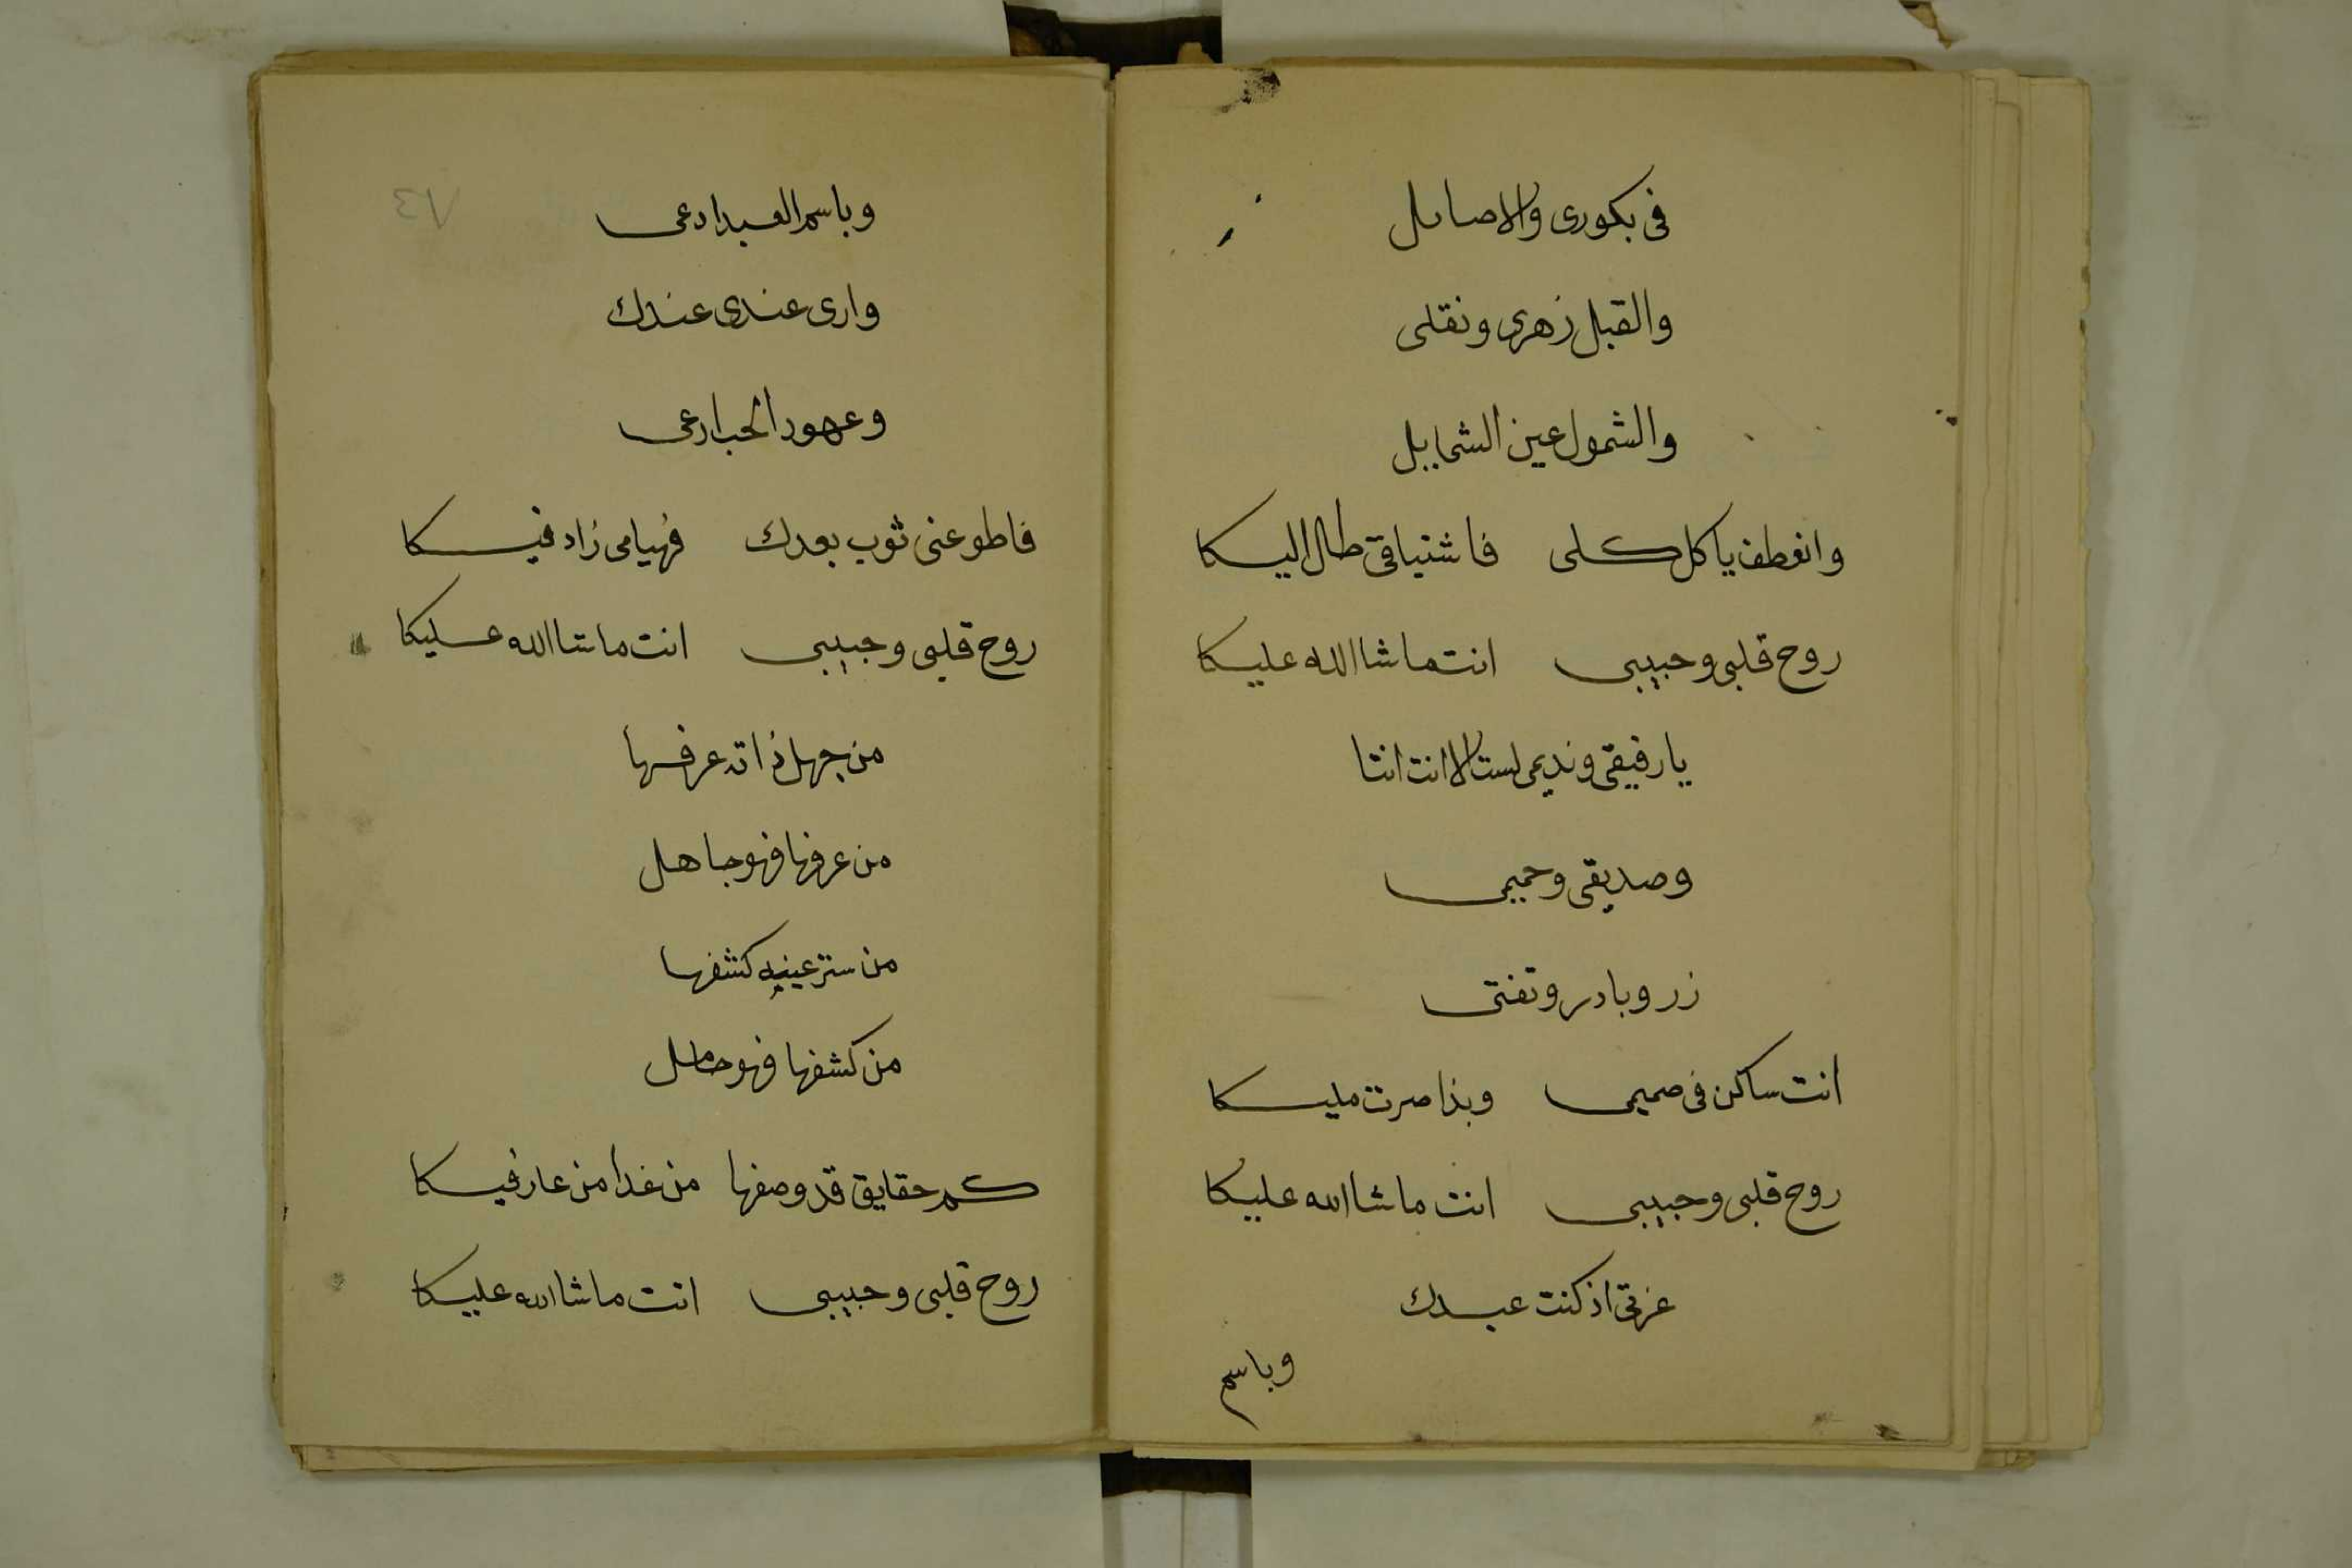 فى بكورى والاصايل
والقبل زهرى ونقلى
والشمول عين الشمايل
وانعطف يا كل كلى فاشتياقى طال اليكا
روح قلبى وحبيبى انت ماشا الله عليكا
يا رفيقى ونديمى لست الا انت انتا
وصديقى وحميمى
زر وبادر وتفتى
انت ساكن فى صميمى وبذا صرت مليكا
روح قلبى وحبيبى انت ماشا الله عليكا
عزتى اذ كنت عبدك
وباسم
٧٤
وباسم العبد ادعى
وارى عندى عندك
وعهود الحب ارعى
فاطو عنى ثوب بعدك فهيامى زاد فيكا
روح قلبى وحبيبى انت ماشا الله عليكا
من جهل ذاته عرفها
من عرفها فهو جاهل
من ستر عينيه كشفها
من كشفها فهو
كم حقايق قد وصفها من غدا من عارفيكا
روح قلبى وحبيبى انت ماشا الله عليكا